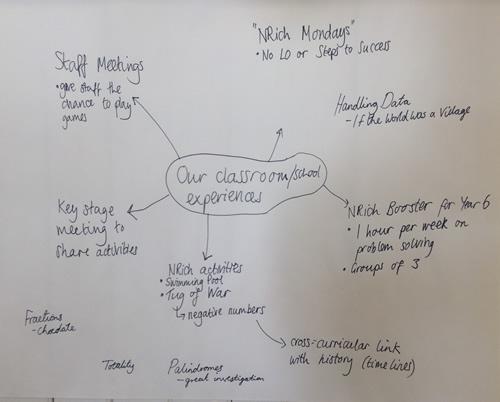 "NRich Mondays"
• No LO or Steps to Success
Staff Meetings
• give staff the
chance to play
games
Handling Data
- If the World was a Village
Our classroom/school
experiences
Key stage
meeting to
share activities
NRich Booster for Year 6
• 1 hour per week on
problem solving
• Groups of 3
NRich activities
• Swimming Pool
• Tug of War
↳ negative numbers
cross-curricular link
with history (timelines)
Fractions
- chocolate
Totality
Palindromes
- great investigation